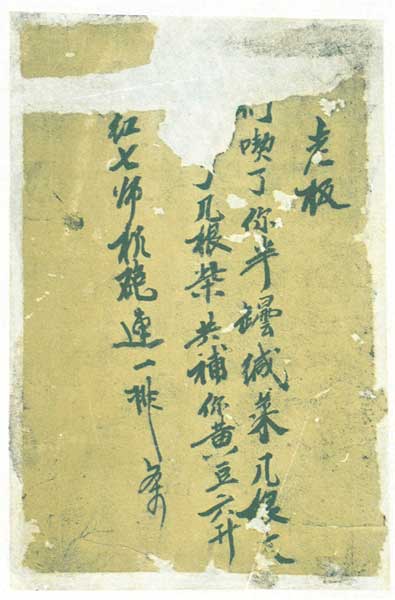 老板
们喫了你半罎缄菜几根
了几根柴共补你黄豆六升
红七师机砲連一排条